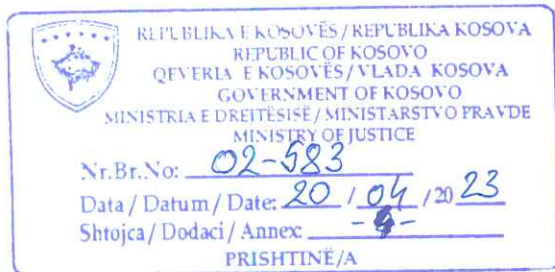 REPUBLIKA E KOSOVËS / REPUBLIKA KOSOVA
REPUBLIC OF KOSOVO
QEVERIA E KOSOVËS / VLADA KOSOVA
GOVERNMENT OF KOSOVO
MINISTRIA E DREJTËSISË / MINISTARSTVO PRAVDE
MINISTRY OF JUSTICE
Nr.Br.No: 02-583
Data / Datum / Date: 20 / 04 / 20 23
Shtojca / Dodaci / Annex:
PRISHTINË/A